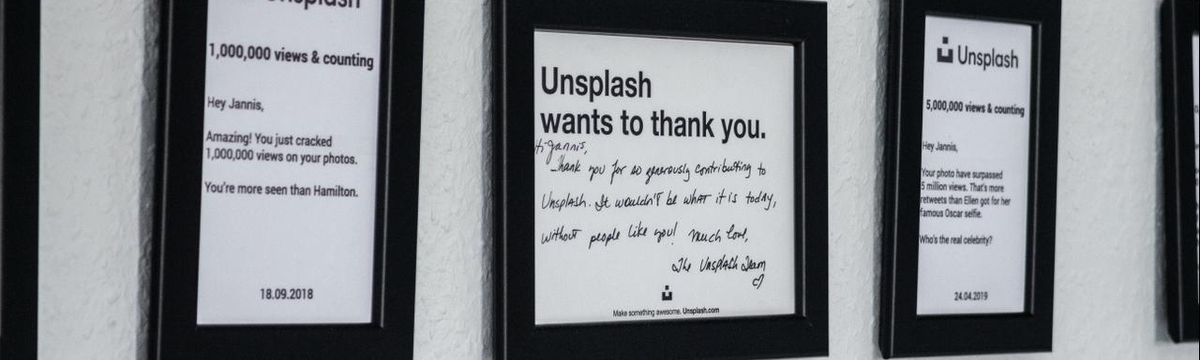 Unsplash
1,000,000 views & counting
Hey Jannis,
Amazing! You just cracked
1,000,000 views on your photos.
You're more seen than Hamilton.
18.09.2018
Unsplash
wants to thank you.
Hi Jannis,
Thank you for so generously contributing to
Unsplash. It wouldn't be what it is today,
without people like you! Much love,
The Unsplash Team
Make something awesome. Unsplash.com
Unsplash
5,000,000 views & counting
Hey Jannis,
Your photo have surpassed
5 million views. That's more
retweets than Ellen got for her
famous Oscar selfie.
Who's the real celebrity?
24.04.2019